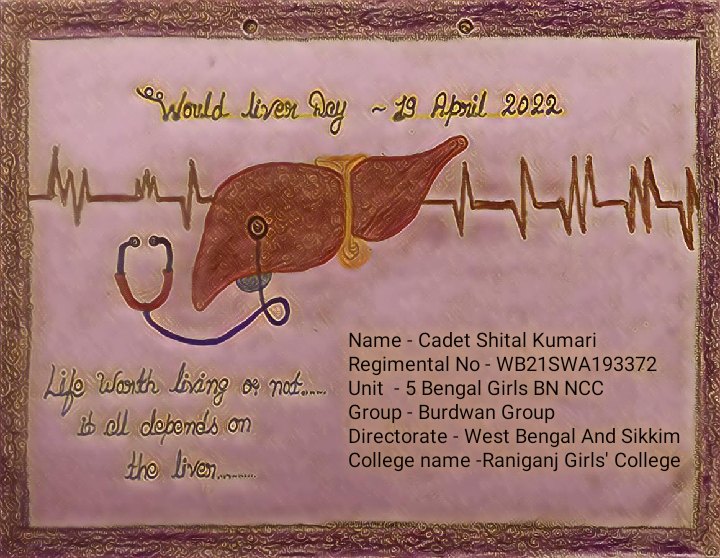 Would liver Day ~ 19 April 2022
Name - Cadet Shital Kumari
Regimental No - WB21SWA193372
Unit - 5 Bengal Girls BN NCC
Group - Burdwan Group
Directorate - West Bengal And Sikkim
College name -Raniganj Girls' College
Life Worth living or not......
it all depends on
the liver.........